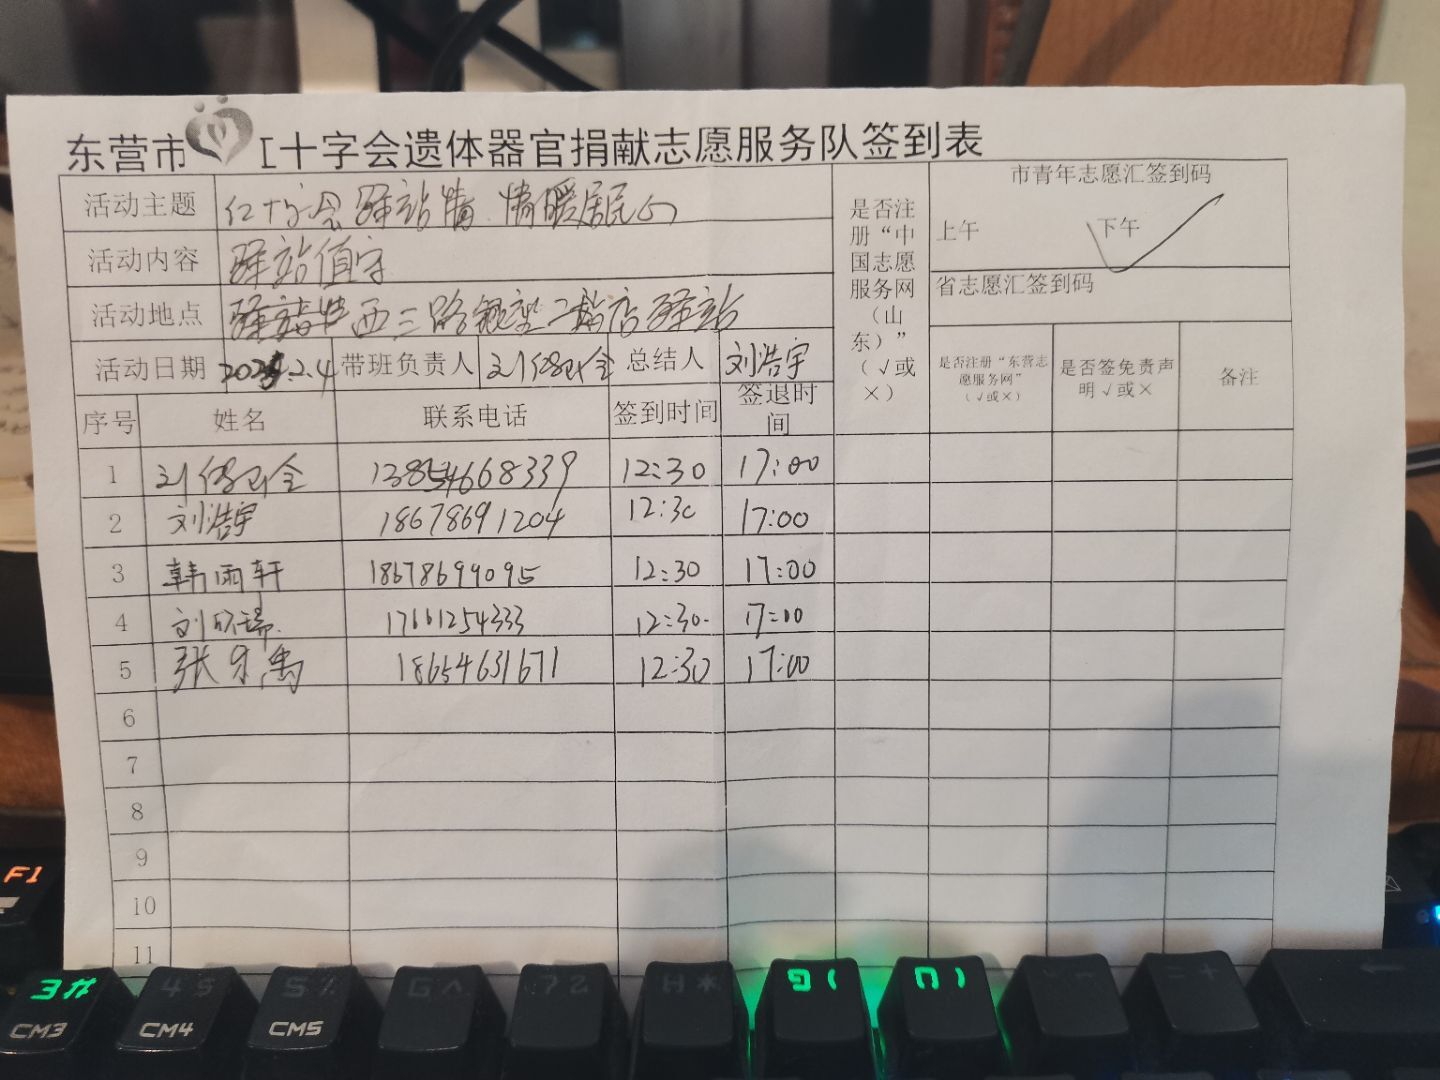 东营市 工十字会遗体器官捐献志愿服务队签到表
活动主题 红十字会驿站情 情暖居民心
活动内容 驿站值守
活动地点 西三路银座二站店驿站
活动日期 2.4 带班负责人 总结人 刘浩宇
是否注册“中国志愿服务网（山东）”（√或×）
市青年志愿汇签到码
上午 下午 √
省志愿汇签到码
是否注册“东营志愿服务网”（√或×） 是否签免责声明√或× 备注
序号 姓名 联系电话 签到时间 签退时间
1 13854668339 12:30 17:00
2 刘浩宇 18678691204 12:30 17:00
3 韩雨轩 18678699095 12:30 17:00
4 17661254333 12:30 17:00
5 18654631671 12:30 17:00
6
7
8
9
10
11
F1
3# 4$ 5% 6^ 72 8* 9( 0)
CM3 CM4 CM5